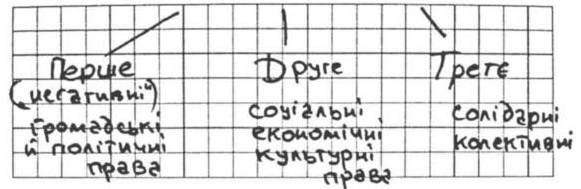 Перше
("негативні")
громадські
й політичні
права
Друге
соціальні
економічні
культурні
права
Третє
солідарні
колективні